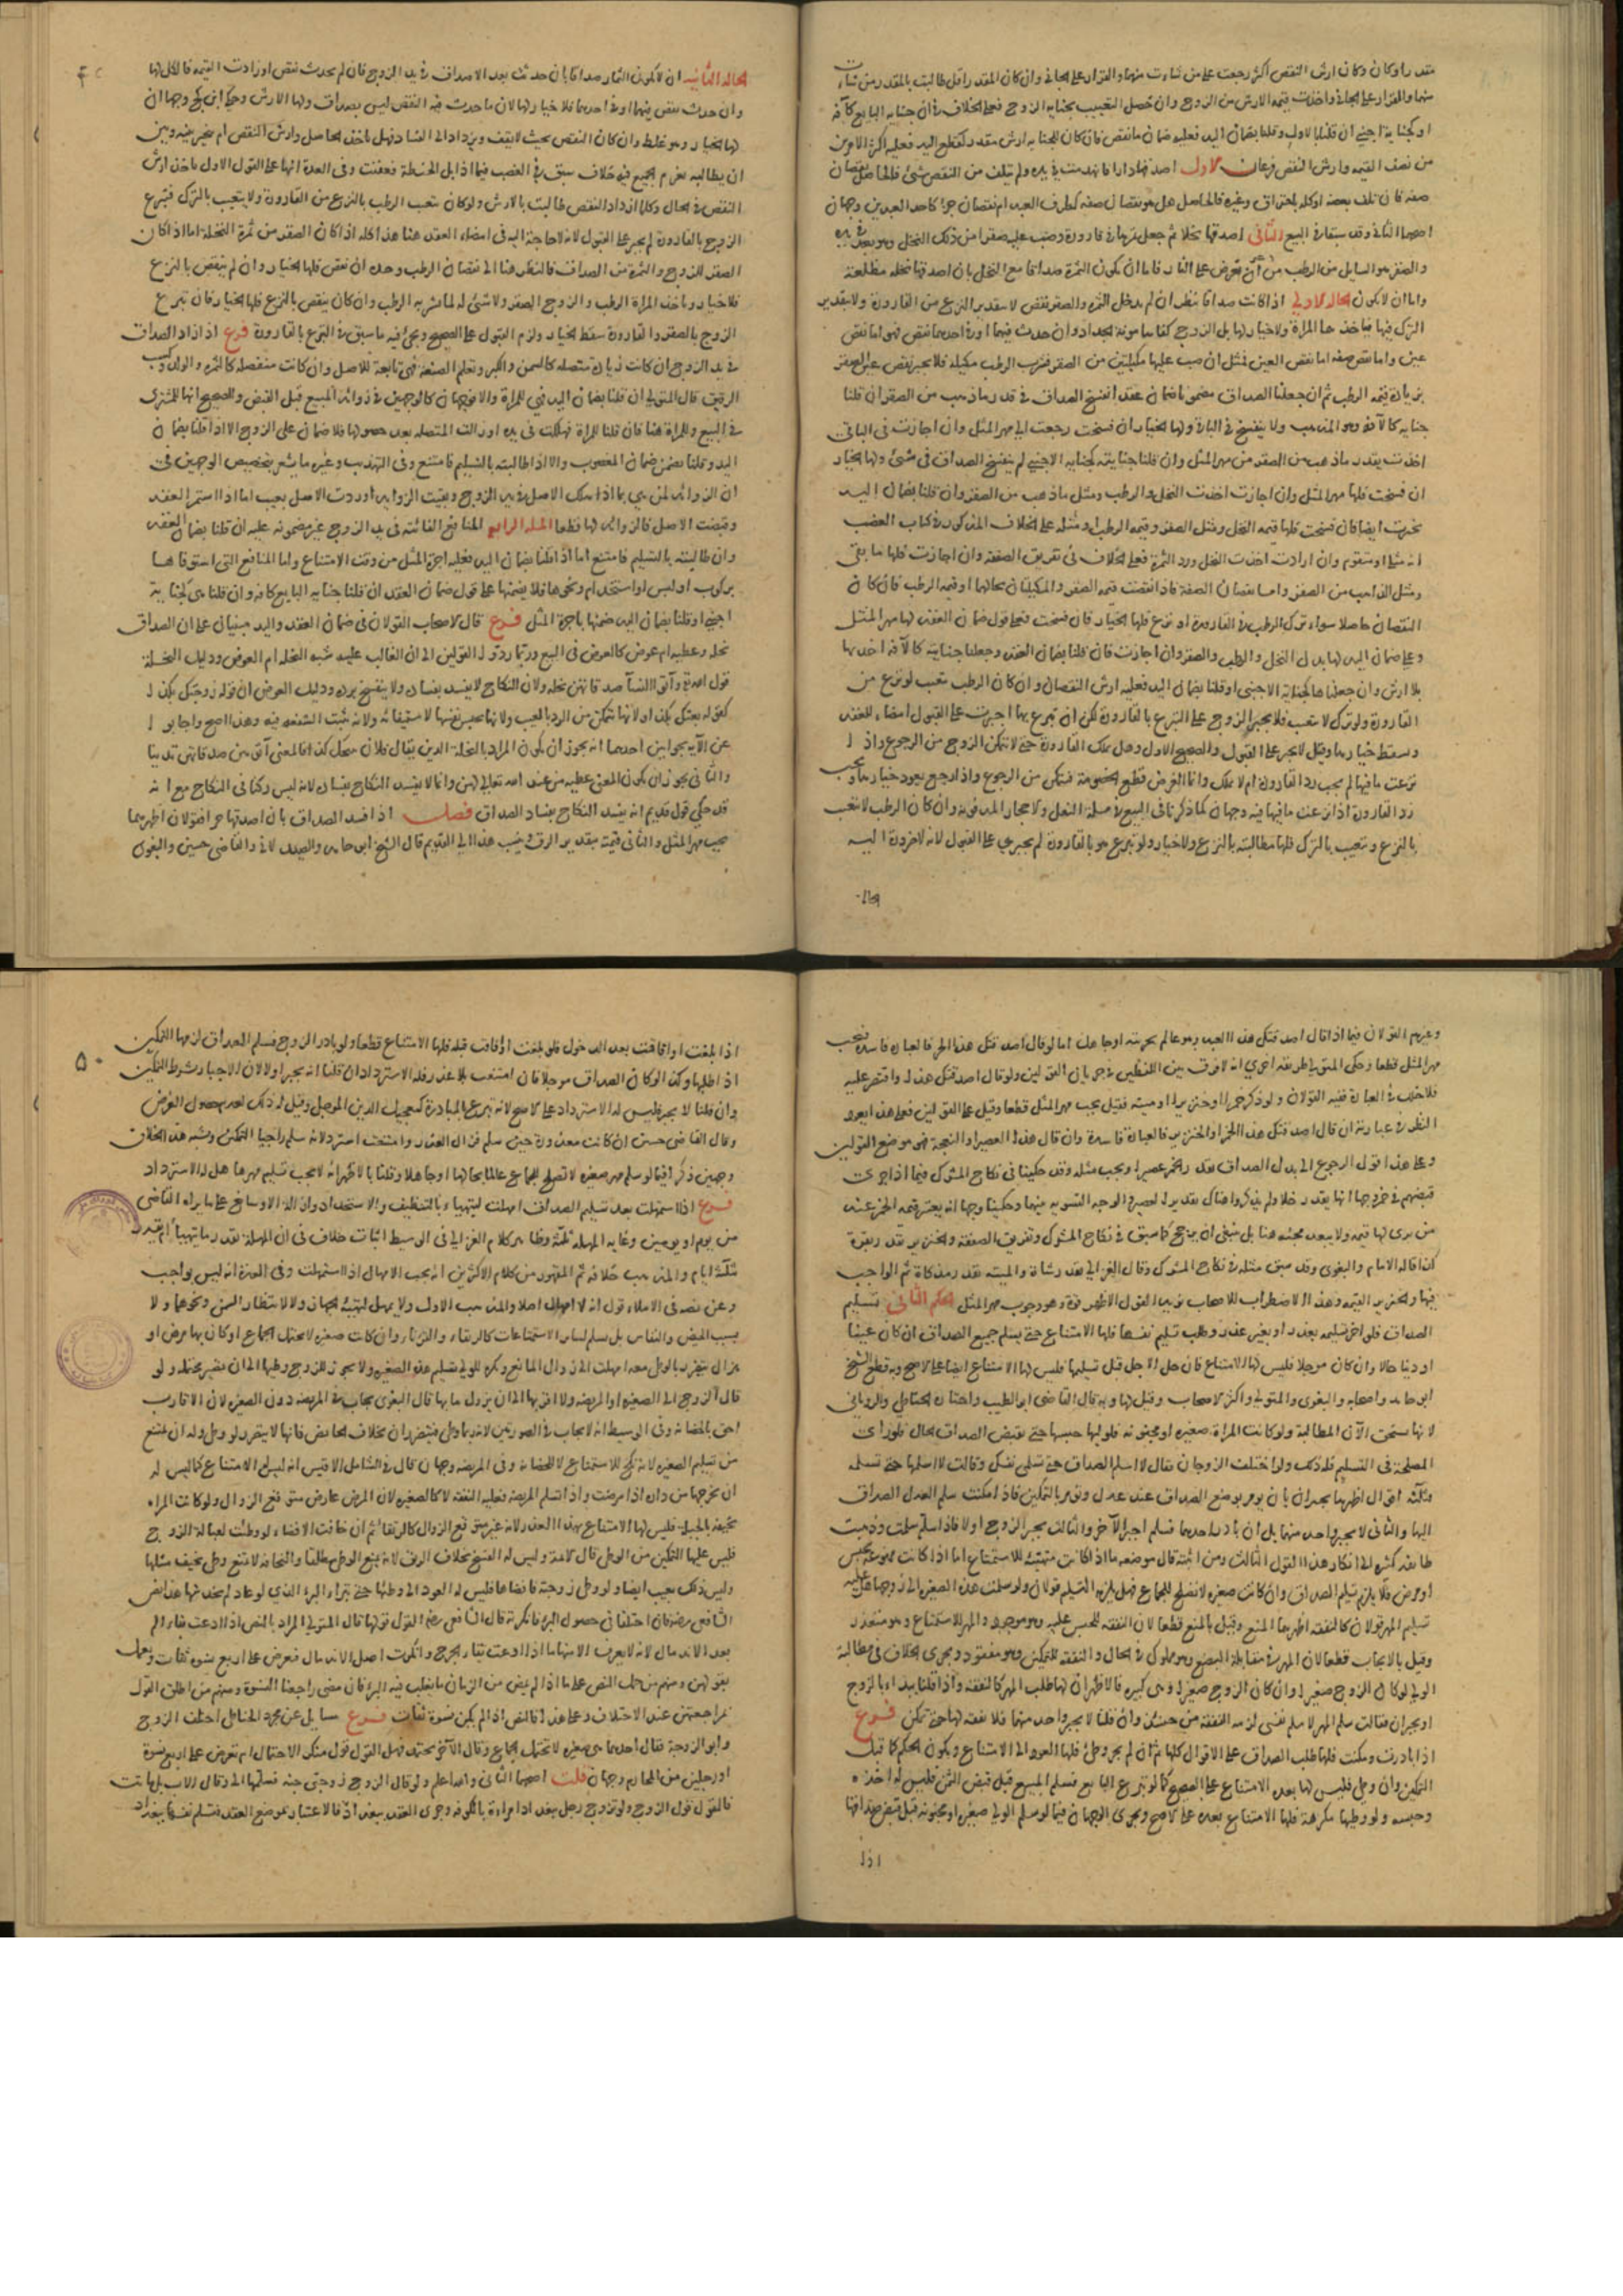 مقدرا وكان وكان ارش النقص اكثر رجعت على من شاءت منهما والقرار على الجاني وان كان المقدر اقل طالبت بالمقدر من شاءت
منهما والقرار على الجاني واخذت قيمه الارش من الزوج وان حصل التعييب بجنايه الزوج فعلى الخلاف في ان جنايه البايع كآفه
او كجناية اجنبي ان قلنا بالاول وقلنا بضمان اليد فعليه ضمان ما نقص فان كان للجنايه ارش مقدر كقطع اليد فعليه اكثر الامرين
من نصف القيمه وارش النقص فرعان الاول اصدقها دارا فانهدمت في يده ولم يتلف من النقض شئ فالحاصل نقصان
صفه فان تلف بعضه او كله باحتراق وغيره فالحاصل هل هو نقصان صفه كطرف العبد ام نقصان جزء كاحد العبدين وجهان
اصحهما الثاني وقد سبقا في البيع الثاني اصدقها نخلا ثم جعل ثمرها في قارورة وصب عليه صقرا من ذلك النخل وهو بعد في يده
والصقر هو السايل من الرطب من غير ان يعرض على النار فاما ان يكون الثمرة صداقا مع النخل بان اصدقها نخله مطلعة
واما ان لا يكون الحاله الاولى اذا كانت صداقا نظر ان لم يدخل الثمره والصقر نقص لا بتقدير النزع من القارورة ولا بتقدير
الترك فيها فتاخذها المراة ولا خيار لها بل الزوج كفاها مونة الجداد وان حدث فيهما او في احدهما نقص فهو اما نقص
عين واما نقص صفه اما نقص العين فمثل ان صب عليها مكيلتين من الصقر فشرب الرطب مكيلة فلا يجبر نقص عين الصقر
بزيادة قيمه الرطب ثم ان جعلنا الصداق مضمونا ضمان عقد انفسخ الصداق في قدر ما ذهب من الصقر ان قلنا
جنايه كالآفه وهو المذهب ولا ينفسخ في الباقي ولها الخيار ان فسخت رجعت الى مهر المثل وان اجازت في الباقي
اخذت بقدر ما ذهب من الصقر من مهر المثل وان قلنا جنايته كجنايه الاجنبي لم ينفسخ الصداق في شئ ولها الخيار
ان فسخت فلها مهر المثل وان اجازت اخذت النخل والرطب ومثل ما ذهب من الصقر وان قلنا بضمان اليد
تخيرت ايضا فان فسخت فلها قيمه النخل ومثل الصقر وقيمه الرطب او مثله على الخلاف المذكور في كتاب الغصب
انه مثلي او متقوم وان ارادت اخذت النخل ورد الثمرة فعلى الخلاف في تفريق الصفقه وان اجازت فلها ما بقي
ومثل الذاهب من الصقر واما نقصان الصفة فاذا نقصت قيمه الصقر والمكيلتان بحالهما او قيمه الرطب فان كان
النقصان حاصلا سواء ترك الرطب في القارورة او نزع فلها الخيار فان فسخت فعلى قول ضمان العقد لها مهر المثل
وعلى ضمان اليد لها بدل النخل والرطب والصقر وان اجازت فان قلنا بضمان العقد وجعلنا جنايته كالآفه اخذتها
بلا ارش وان جعلناها كجناية الاجنبي او قلنا بضمان اليد فعليه ارش النقصان وان كان الرطب تعيب لو نزع من
القارورة ولو ترك لا تعيب فلا يجبر الزوج على التبرع بالقارورة لكن ان تبرع بها اجبرت على القبول امضاء للعقد
وسقط خيارها وقيل لا يجبر على القبول والصحيح الاول وهل تملك القارورة حتى لا يتمكن الزوج من الرجوع واذا
نزعت ما فيها لم يجب رد القارورة ام لا تملك وانما الغرض قطع الخصومة فيتمكن من الرجوع واذا رجع يعود خيارها ويجب
رد القارورة اذا نزعت ما فيها فيه وجهان كما ذكرنا في البيع في مسلة النعل والاحجار المدفونه وان كان الرطب لا تعيب
بالنزع وتعيب بالترك فلها مطالبته بالنزع ولا خيار ولو تبرع هو بالقارورة لم يجبر على القبول لانه لا ضرورة اليه
الحاله
الحاله الثانيه ان لا يكون الثمار صداقا بان حدثت بعد الاصداق في يد الزوج فان لم يحدث نقص او زادت القيمه فالكل لها
وان حدث نقص فيهما او في احدهما فلا خيار لها لان ما حدث فيه النقص ليس بصداق ولها الارش وحكى ابن كج وجها ان
لها الخيار وهو غلط وان كان النقص بحيث لا يقف ويزداد الى الفساد فهل ياخذ الحاصل وارش النقص ام يتخير بينه وبين
ان يطالبه بغرم الجميع فيه خلاف سبق في الغصب فيما اذا بل الحنطة فعفنت وفي العدة انها على القول الاول ياخذ ارش
النقص في الحال وكلما ازداد النقص طالبت بالارش ولو كان تتعيب الرطب بالنزع من القارورة ولا يتعيب بالترك فتبرع
الزوج بالقارورة لم يجبر على القبول لانه لا حاجة اليه في امضاء العقد هنا هذا كله اذا كان الصقر من ثمرة النخلة اما اذا كان
الصقر للزوج والثمرة من الصداق فالنظر هنا الى نقصان الرطب وحده ان نقص فلها الخيار وان لم ينقص بالنزع
فلا خيار وياخذ المراة الرطب والزوج الصقر ولا شئ له لما شربه الرطب وان كان ينقص بالنزع فلها الخيار فان تبرع
الزوج بالصقر والقارورة سقط الخيار ولزم القبول على الصحيح ويجئ فيه ما سبق في التبرع بالقارورة فرع اذا زاد الصداق
في يد الزوج ان كانت زيادة متصله كالسمن والكبر وتعلم الصنعه فهي تابعة للاصل وان كانت منفصله كالثمره والولد وكسب
الرقيق قال المتولي ان قلنا بضمان اليد فهي للمراة والا فوجهان كالوجهين في زوائد المبيع قبل القبض والصحيح انها للمشتري
في البيع وللمراة هنا فان قلنا للمراة فهلكت في يده او زالت المتصله بعد حصولها فلا ضمان على الزوج الا اذا قلنا بضمان
اليد وقلنا يضمن ضمان المغصوب والا اذا طالبته بالتسليم فامتنع وفي التهذيب وغيره ما يشعر بتخصيص الوجهين في
ان الزوائد لمن هي بما اذا هلك الاصل في يد الزوج وبقيت الزوايد او ردت الاصل بعيب اما اذا استمر العقد
وقبضت الاصل فالزوايد لها قطعا المسله الرابعه المنافع الفائته في يد الزوج غير مضمونه عليه ان قلنا بضمان العقد
وان طالبته بالتسليم فامتنع اما اذا قلنا بضمان اليد فعليه اجرة المثل من وقت الامتناع واما المنافع التي استوفاها
بركوب او لبس او استخدام ونحوها فلا يضمنها على قول ضمان العقد ان قلنا جنايه البايع كافه وان قلنا هي كجناية
اجنبي او قلنا بضمان اليد ضمنها باجرة المثل فرع قال الاصحاب القولان في ضمان العقد واليد مبنيان على ان الصداق
نحله وعطيه ام عوض كالعوض في البيع وربما ردوا القولين الى ان الغالب عليه شبه النحله ام العوض ودليل النحلة
قول الله تعالى وآتوا النسآ صدقاتهن نحله ولان النكاح لا يفسد بفساده ولا ينفسخ برده ودليل العوض ان قوله زوجتك بكذا
كقوله بعتك بكذا ولانها تتمكن من الرد بالعيب ولانها تحبس نفسها لاستيفائه ولانه يثبت الشفعه فيه وهذا اصح واجابوا
عن الآيه بجوابين احدهما انه يجوز ان يكون المراد بالنحلة الدين يقال فلان ينتحل كذا فالمعنى آتوهن صدقاتهن تدينا
والثاني يجوز ان يكون المعنى عطيه من عند الله تعالى لهن وانما لا يفسد النكاح بفساده لانه ليس ركنا في النكاح مع انه
قد حكي قول قديم انه يفسد النكاح بفساد الصداق فصل اذا فسد الصداق بان اصدقها حرا فقولان اظهرهما
يجب مهر المثل والثاني قيمته بتقدير الرق وينسب هذا الى القديم قال الشيخ ابو حامد والصيدلاني والقاضي حسين والبغوي
وغيرهم القولان فيما اذا قال اصدقتك هذا العبد وهو عالم بحريته او جاهل اما لو قال اصدقتك هذا الحر فالعباره فاسدة فيجب
مهر المثل قطعا وحكى المتولي طريقه اخرى انه لا فرق بين اللفظين في جريان القولين ولو قال اصدقتك هذا واقتصر عليه
فلا خلل في العبارة ففيه القولان ولو ذكر خمرا او خنزيرا او ميته فقيل يجب مهر المثل قطعا وقيل على القولين فعلى هذا يعود
النظر في عبارته ان قال اصدقتك هذا الخمر او الخنزير فالعبارة فاسدة وان قال هذا العصير او النعجة فهو موضع القولين
وعلى هذا قول الرجوع الى بدل الصداق بقدر الخمر عصيرا ويجب مثله وقد حكينا في نكاح المشرك فيما اذا جرى
قبضهم في خمر وجها انها يقدر خلا ولم يذكروا هناك تقديره عصيرا والوجه التسويه بينهما وحكينا وجها انه يعتبر قيمه الخمر عند
من يرى لها قيمه ولا يبعد مجيئه هنا بل ينبغي ان يرجح كما سبق في نكاح المشرك وتفريق الصفقه والخنزير يقدر بقرة
كذا قاله الامام والبغوى وقد سبق مثله في نكاح المشرك وقال الغزالي يقدر شاة والميته تقدر مذكاة ثم الواجب
فيها والخنزير القيمه وهذا الاضطراب للاصحاب يزيد القول الاظهر قوة وهو وجوب مهر المثل الحكم الثاني تسليم
الصداق فلو اخر تسليمه بعذر او بغير عذر وطلب تسليم نفسها فلها الامتناع حتى يسلم جميع الصداق ان كان عينا
او دينا حالا وان كان موجلا فليس لها الامتناع فان حل الاجل قبل تسليمها فليس لها الامتناع ايضا على الاصح وبه قطع الشيخ
ابو حامد واصحابه والبغوى والمتولي واكثر الاصحاب وقيل لها وبه قال القاضي ابو الطيب واختاره الحناطي والروياني
لانها تستحق الآن المطالبة ولو كانت المراة صغيره او مجنونه فلوليها حبسها حتى يقبض الصداق الحال فلو راى
المصلحة في التسليم فله ذلك ولو اختلف الزوجان فقال لا اسلم الصداق حتى تسلمي نفسك وقالت لا اسلمها حتى تسلمه
فثلثه اقوال اظهرها يجبران بان يومر بوضع الصداق عند عدل وتومر بالتمكين فاذا مكنت سلم العدل الصداق
اليها والثاني لا يجبر واحد منهما بل ان بادر احدهما فسلم اجبر الآخر والثالث يجبر الزوج اولا فاذا سلم سلمت وذهبت
طائفه كثيره الى انكار هذا القول الثالث ومن اثبته قال موضعه ما اذا كانت متهيئه للاستمتاع اما اذا كانت ممنوعة بحبس
او مرض فلا يلزم تسليم الصداق وان كانت صغيره لا تصلح للجماع فهل يلزمه التسليم قولان ولو سلمت هذه الصغيره الى زوجها فهل عليه
تسليم المهر قولان كالنفقه اظهرهما المنع وقيل بالمنع قطعا لان النفقه للحبس عليه وهو موجود والمهر للاستمتاع وهو متعذر
وقيل بالايجاب قطعا لان المهر في مقابلة البضع وهو مملوك في الحال والنفقه للتمكين وهو مفقود ويجرى الخلاف في مطالبة
الولي لو كان الزوج صغيرا وان كان الزوج صغيرا وهي كبيره فالاظهر ان لها طلب المهر كالنفقه واذا قلنا يبدا بالزوج
او يجبران فقالت سلم المهر لاسلم نفسي لزمه النفقه من حينئذ وان قلنا لا يجبر واحد منهما فلا نفقه لها حتى تمكن فرع
اذا بادرت ومكنت فلها طلب الصداق على الاقوال كلها ثم ان لم يجر وطئ فلها العود الى الامتناع ويكون الحكم كما قبل
التمكين وان وطئ فليس لها بعده الامتناع على الصحيح كما لو تبرع البايع فسلم المبيع قبل قبض الثمن فليس له اخذه
وحبسه ولو وطيها مكرهة فلها الامتناع بعده على الاصح ويجرى الوجهان فيما لو سلم الولي صغيره او مجنونه قبل قبض صداقها
اذا
۵۰
اذا بلغت او افاقت بعد الدخول فلو بلغت او افاقت قبله فلها الامتناع قطعا ولو بادر الزوج فسلم الصداق لزمها التمكين
اذا طلبها وكذا لو كان الصداق موجلا فان امتنعت بلا عذر فله الاسترداد ان قلنا انه يجبر اولا لان الاجبار بشرط التمكين
وان قلنا لا يجبر فليس له الاسترداد على الاصح لانه تبرع بالمبادرة كتعجيل الدين الموجل وقيل له ذلك لعدم حصول الغرض
وقال القاضي حسين ان كانت معذورة حين سلم فزال العذر وامتنعت استرد لانه سلم راجيا التمكن وشبه هذا الخلاف
وجهين ذكرا فيما لو سلم مهر صغيره لا تصلح للجماع عالما بحالها او جاهلا وقلنا بالاظهر انه لا يجب تسليم مهرها هل له الاسترداد
فرع اذا استمهلت بعد تسليم الصداق امهلت لتتهياء بالتنظيف والاستحداد وازالة الاوساخ على ما يراه القاضي
من يوم او يومين وغايه المهله ثلثة وظاهر كلام الغزالي في الوسيط اثبات خلاف في ان المهلة تقدر بما يتهيأ ام تقدر
بثلثة ايام والمذهب خلافه ثم المفهوم من كلام الاكثرين انه يجب الامهال اذا استمهلت وفي العدة انه ليس بواجب
وعن نصه في الاملاء قول انه لا امهال اصلا والمذهب الاول ولا يمهل لتهيئة الجهاز ولا لانتظار السمن ونحوهما ولا
بسبب الحيض والنفاس بل يسلم لساير الاستمتاعات كالرتقاء والقرناء وان كانت صغيره لا تحتمل الجماع او كان بها مرض او
هزال يتضرر بالوطئ معه امهلت الى زوال المانع ويكره للولي تسليم هذه الصغيره ولا يجوز للزوج وطيها الى ان يصير محتملة ولو
قال الزوج سلموا الى الصغيره او المريضه ولا اقربها الى ان يزول ما بها قال البغوى يجاب في المريضه دون الصغيره لان الاقارب
احق بالحضانه وفي الوسيط انه لا يجاب في الصورتين لانه ربما وطئ فيتضرران بخلاف الحايض فانها لا يتضرر لو وطئ وله ان يمتنع
من تسليم الصغيره لانه نكح للاستمتاع لا للحضانه وفي المريضه وجهان قال في الشامل الاقيس انه ليس له الامتناع كما ليس له
ان يخرجها من داره اذا مرضت واذا تسلم المريضه فعليه النفقه لا كالصغيره لان المرض عارض متوقع الزوال ولو كانت المراه
نحيفه بالجبله فليس لها الامتناع بهذا العذر لانه غير متوقع الزوال كالرتقا ثم ان خافت الافضاء لو وطئت لعبالة الزوج
فليس عليها التمكين من الوطئ قال الائمة وليس له الفسخ بخلاف الرتق لانه يمنع الوطئ مطلقا والنحافه لا تمنع وطئ نحيف مثلها
وليس ذلك بعيب ايضا ولو وطئ زوجته فافضاها فليس له العود الى وطئها حتى تبراء البرء الذي لو عاد لم يخدشها هذا نص
الشافعي رضه فان اختلفا في حصول البرء فانكرته قال الشافعي رضه القول قولها قال المتولي المراد بالنص اذا ادعت بقاء الم
بعد الاندمال لانه لا يعرف الا منها اما اذا ادعت بقاء الجرح وانكرت اصل الاندمال فيعرض على اربع نسوة ثقات ويعمل
بقولهن ومنهم من حمل النص على ما اذا لم يمض من الزمان ما يغلب فيه البرء فان مضى راجعنا النسوة ومنهم من اطلق القول
بمراجعتهن عند الاختلاف وعلى هذا فالنص اذا لم يكن نسوة ثقات فرع سايل عن مجرد الحناطي اختلف الزوج
وابو الزوجة فقال احدهما هي صغيره لا تحتمل الجماع وقال الآخر محتمله فهل القول قول منكر الاحتمال ام تعرض على اربع نسوة
او رجلين من المحارم وجهان قلت اصحهما الثاني والله اعلم ولو قال الزوج زوجتي حيه فسلمها الي وقال الاب بل ماتت
فالقول قول الزوج ولو تزوج رجل ببغداد امراة بالكوفه وجرى العقد ببغداد فالاعتبار بموضع العقد فتسلم نفسها ببغداد